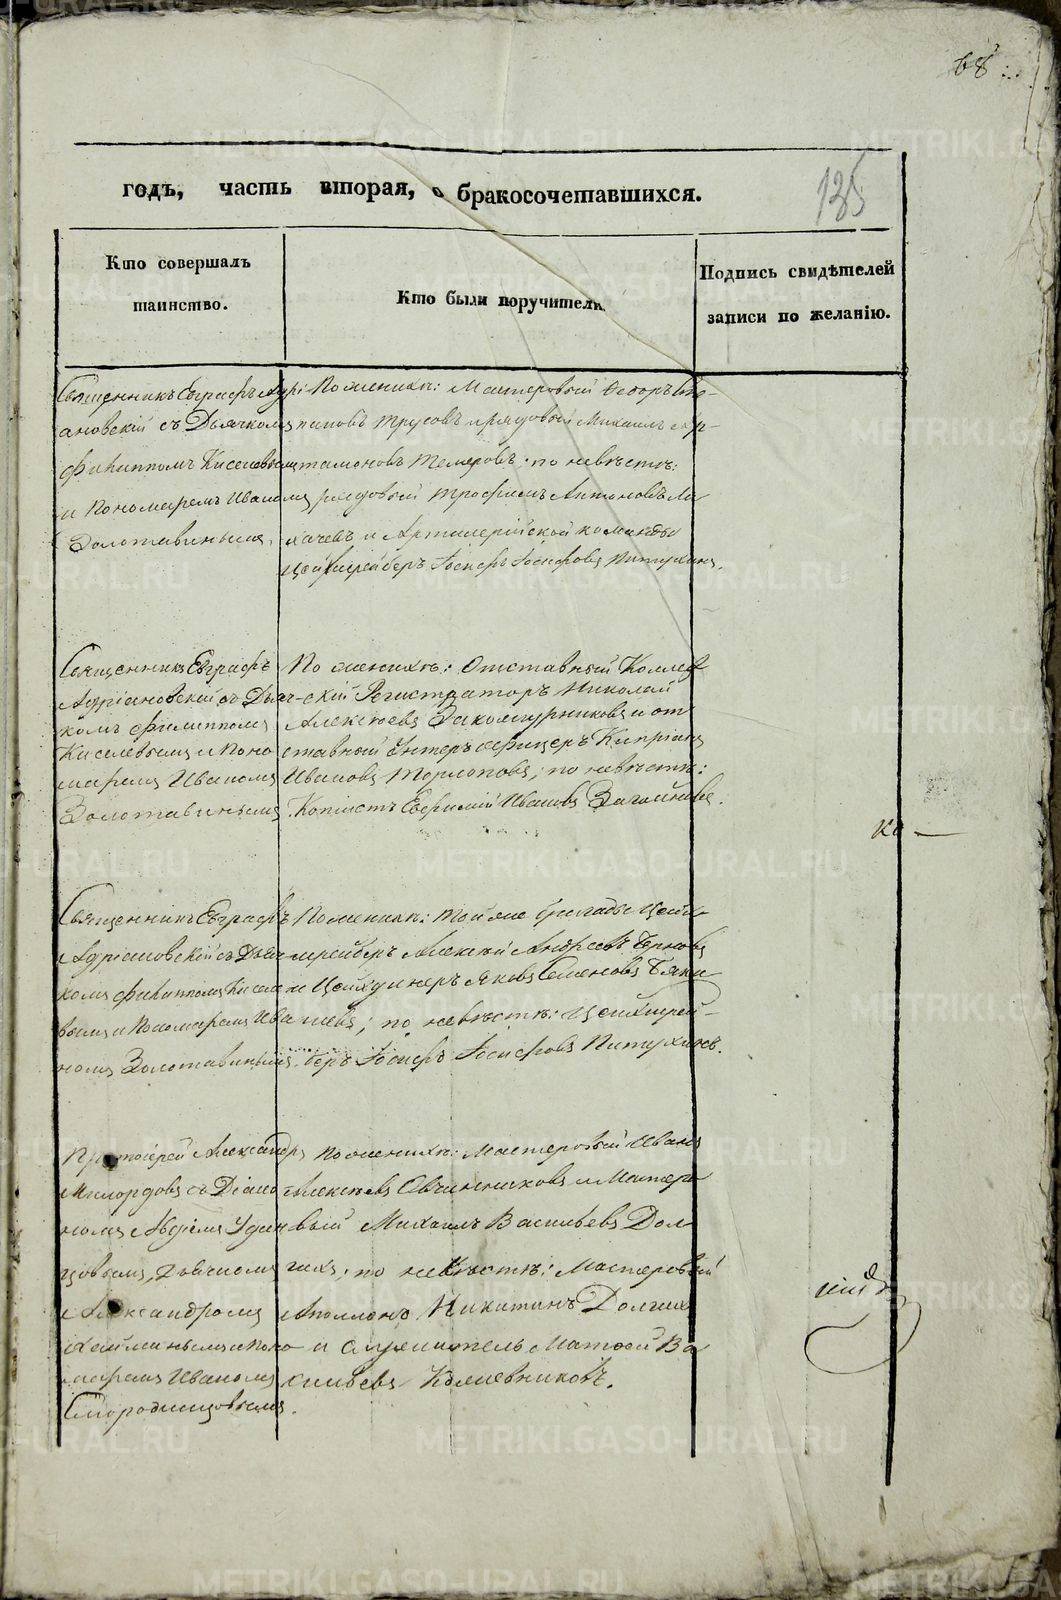 68
135
годъ, часть вторая, о бракосочетавшихся.
Кто совершалъ
таинство.
Кто были поручители.
Подпись свидѣтелей
записи по желанію.
Священникъ Евграфъ Адрі
ановскій съ Дьячкомъ
Филиппомъ Киселевымъ
и Пономаремъ Иваномъ
Золотавинымъ.
По женихѣ: Мастеровый Федоръ Сте-
пановъ Трусовъ и рядовый Михаилъ Ар-
тамоновъ Темеровъ; по невѣстѣ:
рядовый Трофимъ Антоновъ Ли
хачевъ и Артилерійской команды
Цейхшрейберъ Іосифъ Іосифовъ Питухинъ.
Священникъ Евграфъ
Адріановскій съ Дьяч-
комъ Филиппомъ
Киселевымъ и Поно
маремъ Иваномъ
Золотавинымъ
По женихѣ: Отставный Коллеж
скій Регистраторъ Николай
Алексѣевъ Закожурниковъ и от
ставный Унтеръ офицеръ Кипріанъ
Ивановъ Торлоповъ; по невѣстѣ:
Копіистъ Евфимій Ивановъ Загайновъ.
ко —
Священникъ Евграфъ
Адріановскій съ Дьяч
комъ Филиппомъ Кисел
вымъ и Пономаремъ Ива
номъ Золотавинымъ.
По женихѣ: той же бригады Цейх-
шрейберъ Алексѣй Андреевъ
и Цейхдинеръ Яковъ Семеновъ Бяки
шевъ; по невѣстѣ: Цейхшрей-
беръ Іосифъ Іосифовъ Питухинъ.
Протоіерей Александръ
Милордовъ съ Діако
номъ Авдіемъ Удин
цовымъ, дьячкомъ
Александромъ
и Поно
маремъ Иваномъ
Смородинцовымъ.
По женихѣ: Мастеровый Иванъ
Алексѣевъ Овчинниковъ и Мастеро
вый Михаилъ Васильевъ Дол
гихъ; по невѣстѣ: Мастеровый
Аполлонъ Никитинъ Долгихъ
и Служитель Матвей Ва
сильевъ Кожевниковъ.
METRIKI.GASO-URAL.RU